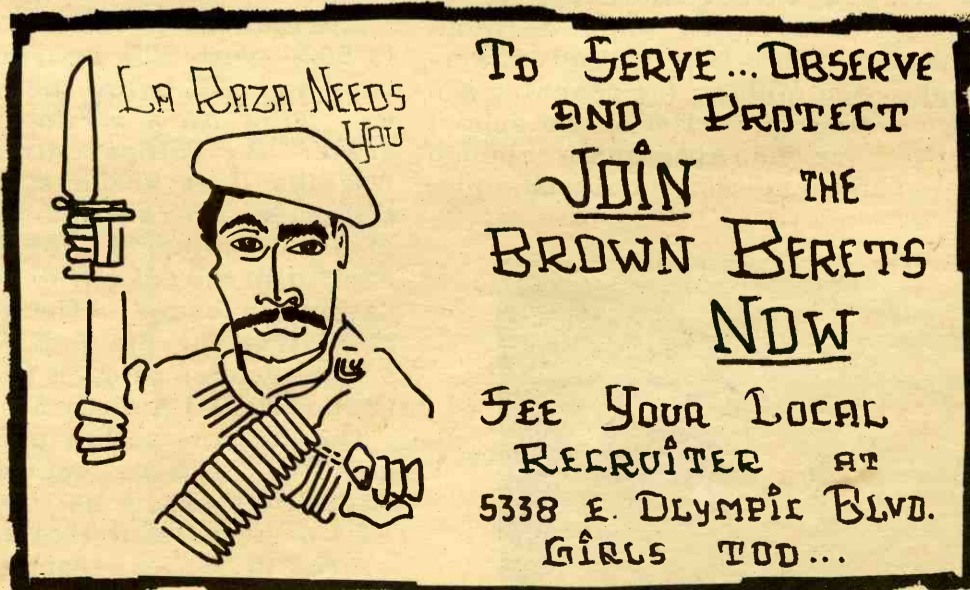 LA RAZA NEEDS
YOU
TO SERVE... OBSERVE
AND PROTECT
JOIN THE
BROWN BERETS
NOW
SEE YOUR LOCAL
RECRUITER AT
5338 E. OLYMPIC BLVD.
GIRLS TOO...